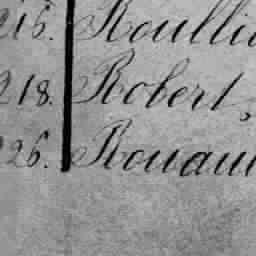 215. Roulli
218. Robert,
226. Rouau